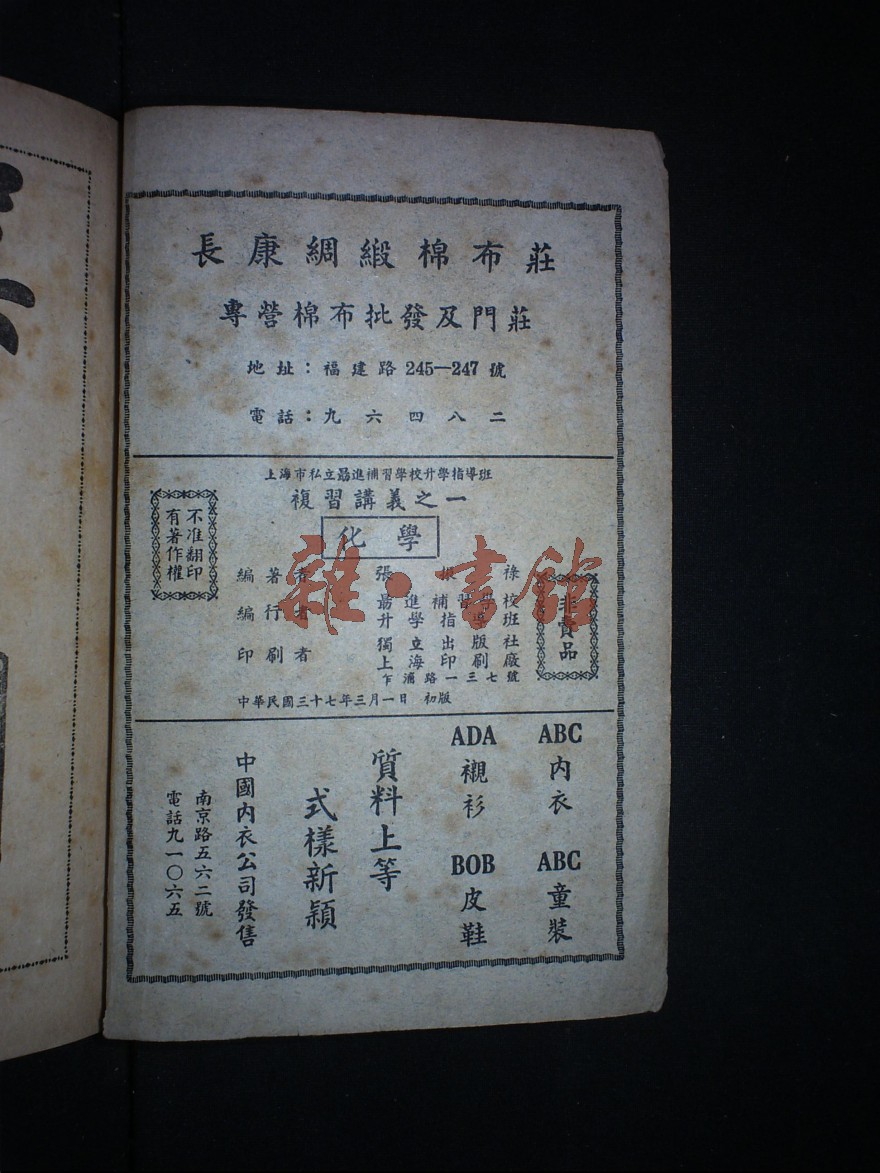 長康綢緞棉布莊
專營棉布批發及門莊
地址：福建路245—247號
電話：九六四八二
上海市私立勗進補習學校升學指導班
複習講義之一
化學
不准翻印
有著作權
非賣品
編著者 張 祿
編行者 勗進補習學校
升學指導班
印刷者 獨立出版社
上海印刷廠
乍浦路一三七號
中華民國三十七年三月一日 初版
ABC內衣 ABC童裝
ADA襯衫 BOB皮鞋
質料上等
式樣新穎
中國內衣公司發售
南京路五六二號
電話九一〇六五
雜·書館